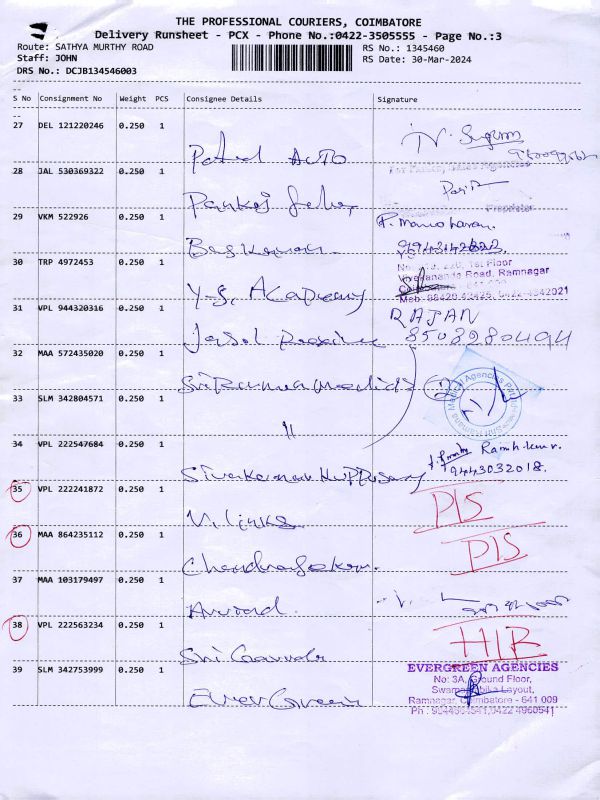 THE PROFESSIONAL COURIERS, COIMBATORE
Delivery Runsheet - PCX - Phone No.:0422-3505555 - Page No.:3
Route: SATHYA MURTHY ROAD
RS No.: 1345460
Staff: JOHN
RS Date: 30-Mar-2024
DRS No.: DCJB134546003
S No Consignment No Weight PCS Consignee Details Signature
27 DEL 121220246 0.250 1
Patel AUTO
28 JAL 530369322 0.250 1
Pankaj
29 VKM 522926 0.250 1
P. Manoharan
30 TRP 4972453 0.250 1
1st Floor
Road, Ramnagar
Y.S. Academy
31 VPL 944320316 0.250 1
RAJAN
8503280494
32 MAA 572435020 0.250 1
Sri Ramana Medicals
33 SLM 342804571 0.250 1
"
34 VPL 222547684 0.250 1
Ramkumar
9443032018.
Sivakumar Kuppusamy
35 VPL 222241872 0.250 1
D/S
V. links
36 MAA 864235112 0.250 1
D/S
Chandrasekar.
37 MAA 103179497 0.250 1
Arvind.
38 VPL 222563234 0.250 1
H/R
Sri
39 SLM 342753999 0.250 1
EVERGREEN AGENCIES
No: 3A, Ground Floor,
Layout,
Ramnagar, Coimbatore - 641 009
Ever Green